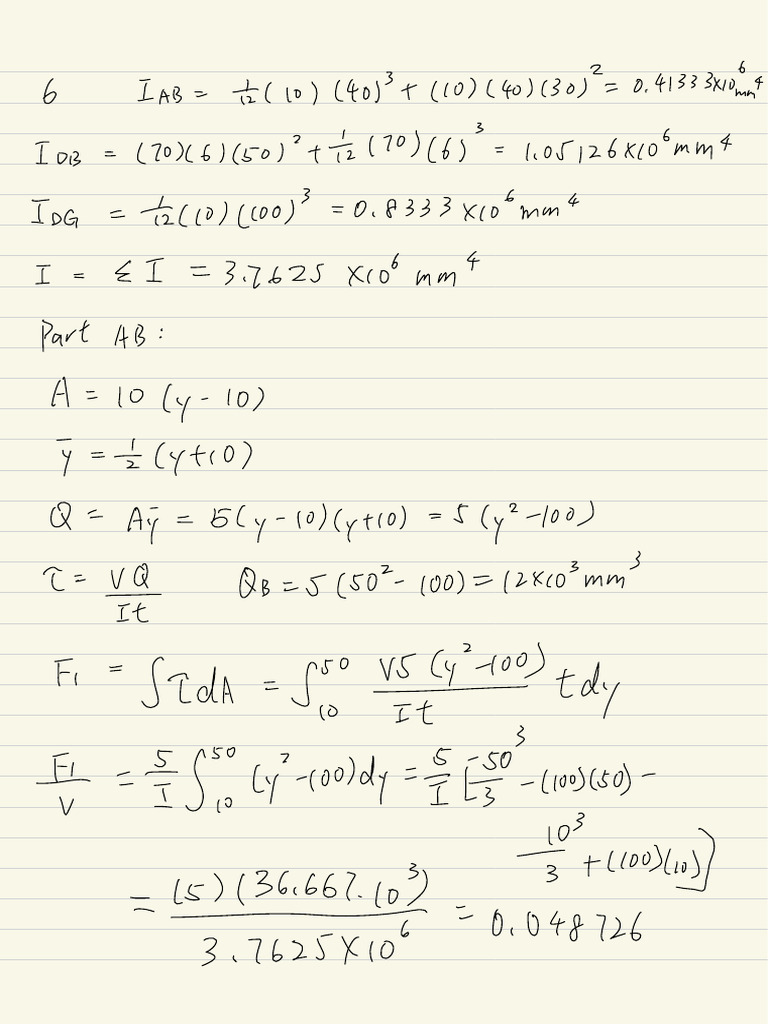 6 I_AB = 1/12 (10) (40)^3 + (10) (40) (30)^2 = 0.41333×10^6 mm^4
I_DB = (70)(6)(50)^2 + 1/12 (70)(6)^3 = 1.05126×10^6 mm^4
I_DG = 1/12 (10)(100)^3 = 0.8333×10^6 mm^4
I = ΣI = 3.7625 ×10^6 mm^4
Part AB:
A = 10 (y-10)
ȳ = 1/2 (y+10)
Q = Aȳ = 5(y-10)(y+10) = 5(y^2-100)
τ = VQ/It Q_B = 5(50^2-100) = 12×10^3 mm^3
F_1 = ∫τdA = ∫_10^50 V5(y^2-100)/It tdy
F_1/V = 5/I ∫_10^50 (y^2-100)dy = 5/I [-50^3/3 -(100)(50) -
10^3/3 +(100)(10)]
= (5)(36.667·10^3)/3.7625×10^6 = 0.048726